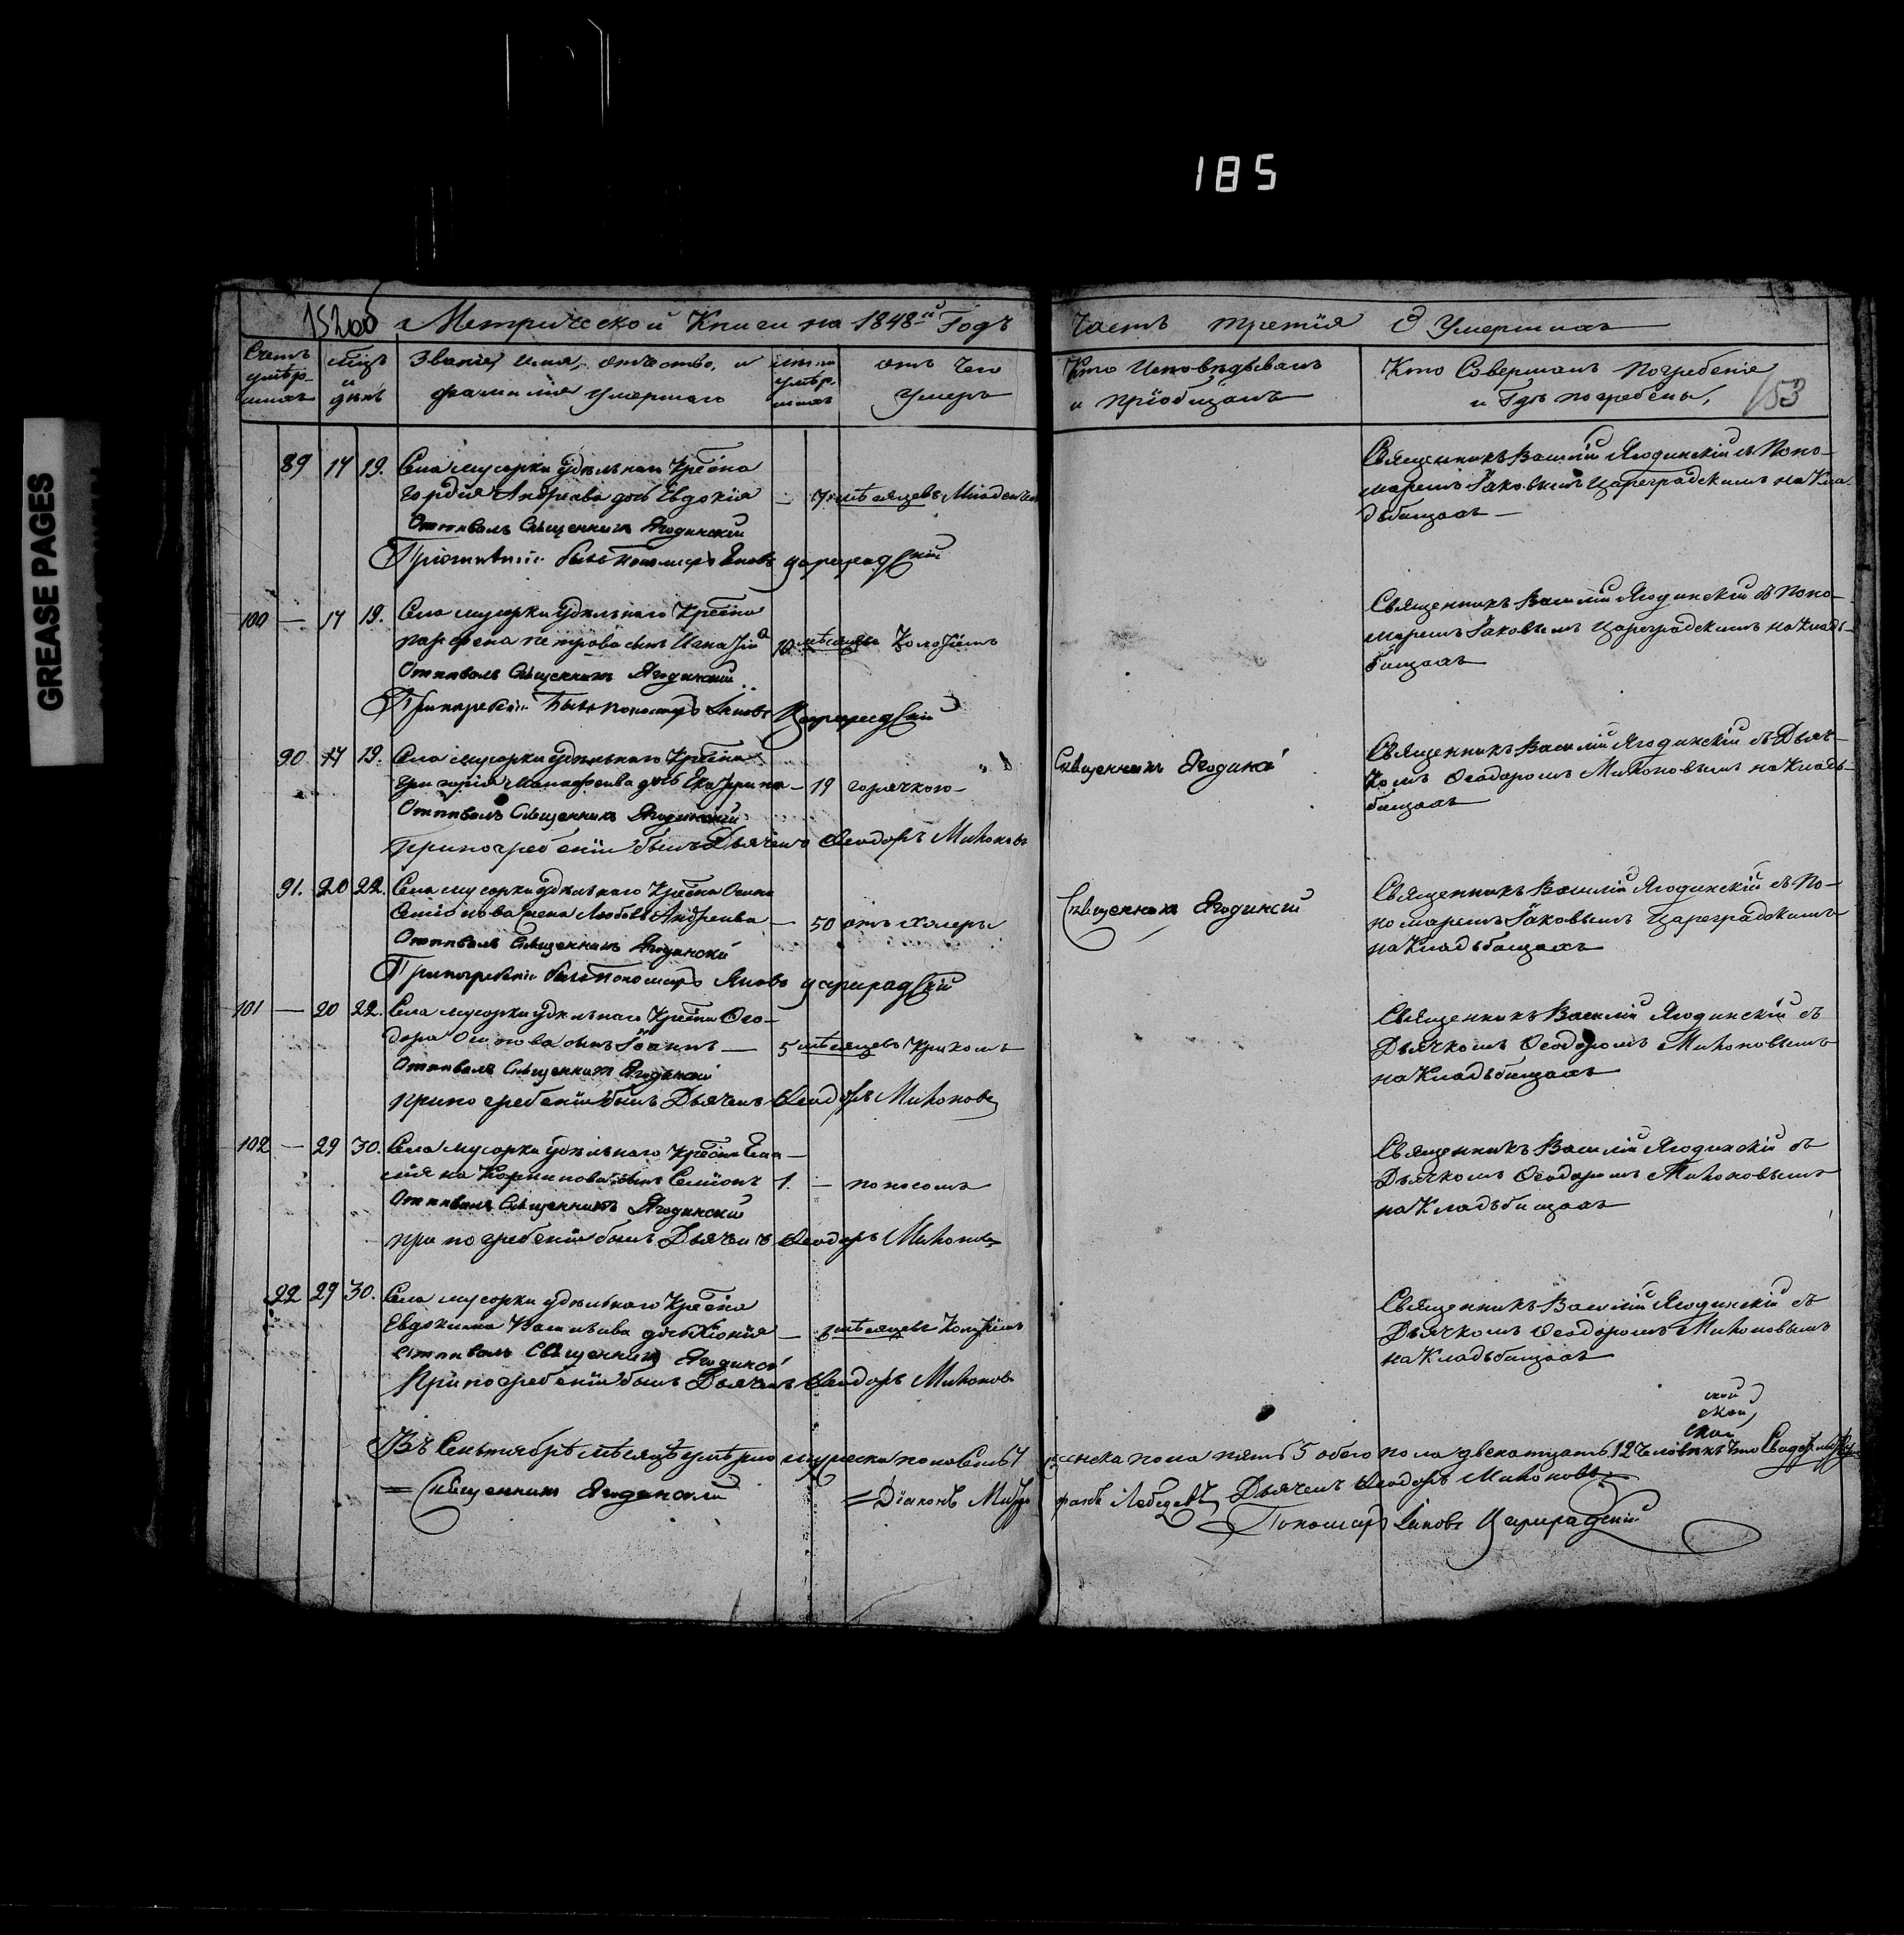 185
GREASE PAGES
152об
Метрической Книги на 1848й Годъ
часть третія О умершихъ
153
Счетъ умѣршихъ
мцъ и днь
Званіе, имя, отчество, и фамилия умершаго
лѣта умѣршихъ
отъ чего умеръ
Кто Исповѣдывалъ и пріобщалъ
Кто Совершалъ погребеніе и Гдѣ погребены,
89 17 19. Села мусорки удѣльнаго Крестна
гордѣя Андреева дочь Евдокія — 7. мѣсяцевъ Младенч
Отпѣвалъ Священникъ Ягодинскій
былъ пономарь Іаковъ Цареградскій
Священникъ Василій Ягодинскій съ Поно-
маремъ Іаковымъ Цареградскимъ на Кла
дьбищахъ —
100 — 17 19. Села мусорки удѣльнаго Крестна
парфена петрова сынъ 10 мѣсяцевъ
Отпѣвалъ Священникъ Ягодинскій
При погребеніи былъ пономарь Іаковъ Цареградскій
Священникъ Василій Ягодинскій съ Поно-
маремъ Іаковымъ Цареградскимъ на Кладь-
бищахъ
90 17 19. Села мусорки удѣльнаго Крестна
григорія дочь Екатерина — 19 горячкою —
Отпѣвалъ Священникъ Ягодинскій
при погребеніи былъ Дьячекъ Ѳеодоръ Милоновъ
Священникъ Ягодинскій
Священникъ Василій Ягодинскій съ Дьяч-
комъ Ѳеодоромъ Милоновымъ на Кладь-
бищахъ
91. 20 22. Села мусорки удѣльнаго Крестна Осипа
жена Любовь Андреева — 50 отъ холеры
Отпѣвалъ Священникъ Ягодинскій
При погребеніи былъ пономарь Яковъ Цареградскій
Священникъ Ягодинскій
Священникъ Василій Ягодинскій съ По-
номаремъ Іаковымъ Цареградскимъ
на Кладьбищахъ
101 — 20 22. Села мусорки удѣльнаго Крестна Ѳео-
дора Осипова сынъ Іоаннъ — 5 мѣсяцевъ Крикомъ
Отпѣвалъ Священникъ Ягодинскій
при погребеніи былъ Дьячекъ Ѳеодоръ Милоновъ
Священникъ Василій Ягодинскій съ
Дьячкомъ Ѳеодоромъ Милоновымъ
на Кладьбищахъ
102 — 29 30. Села мусорки удѣльнаго Крестна Еме-
ліяна сынъ Семіонъ 1. — поносомъ
Отпѣвалъ Священникъ Ягодинскій
при погребеніи былъ Дьячекъ Ѳеодоръ Милоновъ
Священникъ Василій Ягодинскій съ
Дьячкомъ Ѳеодоромъ Милоновымъ
на Кладьбищахъ
92 29 30. Села мусорки удѣльнаго Крестна
Евдокима Васильева дочь Хіонія — мѣсяцевъ
Отпѣвалъ Священникъ Ягодинскій
При погребеніи былъ Дьячекъ Ѳеодоръ Милоновъ
Священникъ Василій Ягодинскій съ
Дьячкомъ Ѳеодоромъ Милоновымъ
на Кладьбищахъ
Въ Сентябрѣ мѣсяцѣ умѣрло мужеска пола семь 7 женска пола пять 5 обоего пола двенатцать 12 человѣкъ что
= Священникъ Ягодинскій = Діаконъ Митрофанъ Лебедевъ Дьячекъ Ѳеодоръ Милоновъ
Пономарь Іаковъ Цареградскій